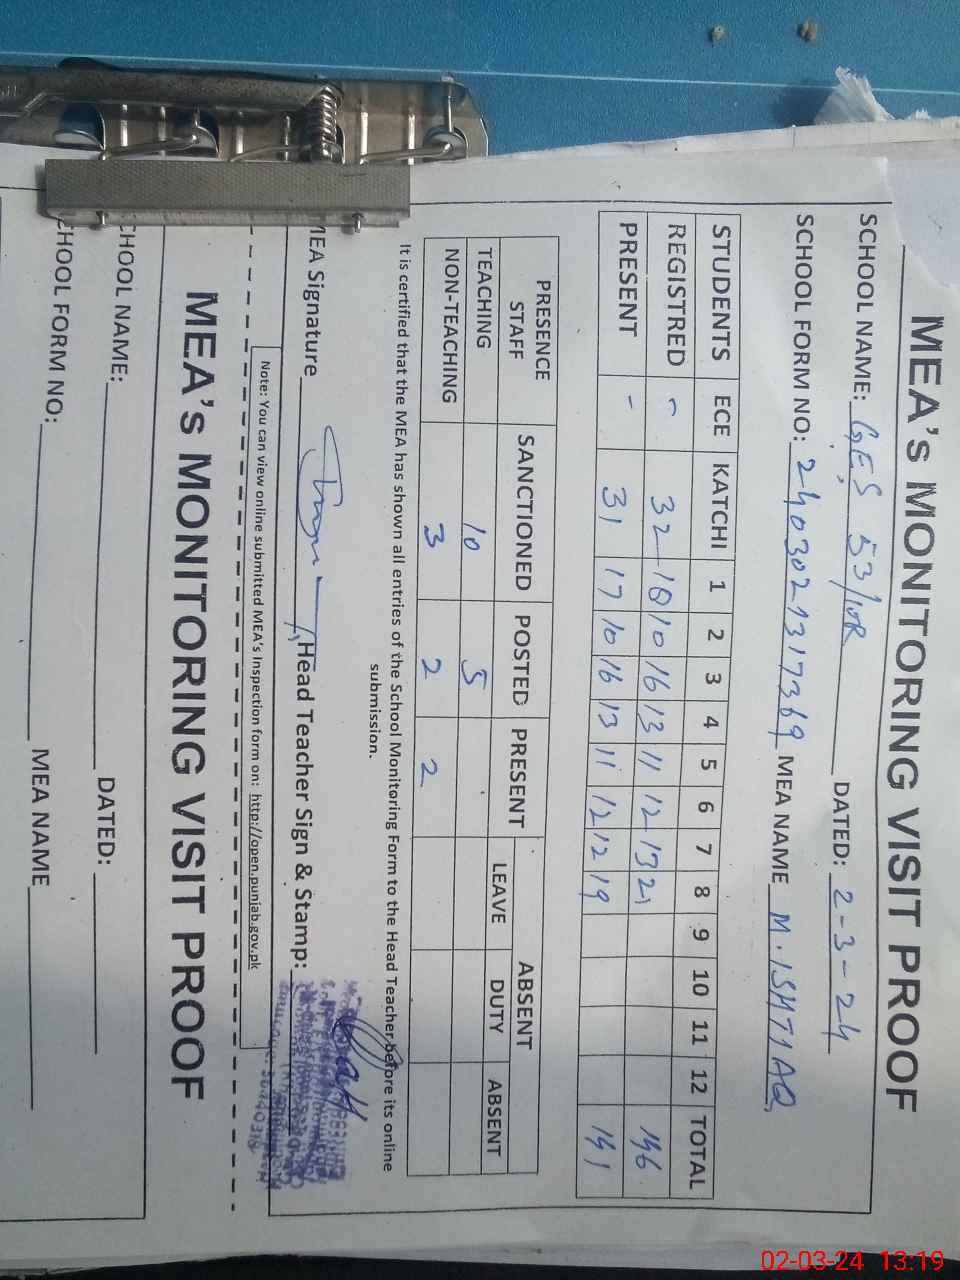 MEA's MONITORING VISIT PROOF
SCHOOL NAME: GES 53/10R DATED: 2-3-24
SCHOOL FORM NO: 2403021317369 MEA NAME M.ISHTIAQ
STUDENTS ECE KATCHI 1 2 3 4 5 6 7 8 9 10 11 12 TOTAL
REGISTRED - 32 18 10 16 13 11 12 13 21 146
PRESENT - 31 17 10 16 13 11 12 12 19 141
PRESENCE STAFF SANCTIONED POSTED PRESENT ABSENT
LEAVE DUTY ABSENT
TEACHING 10 5
NON-TEACHING 3 2 2
It is certified that the MEA has shown all entries of the School Monitoring Form to the Head Teacher before its online
submission.
MEA Signature Head Teacher Sign & Stamp:
Note: You can view online submitted MEA's Inspection form on: http://open.punjab.gov.pk
MEA's MONITORING VISIT PROOF
CHOOL NAME: DATED:
CHOOL FORM NO: MEA NAME
02-03-24 13:19